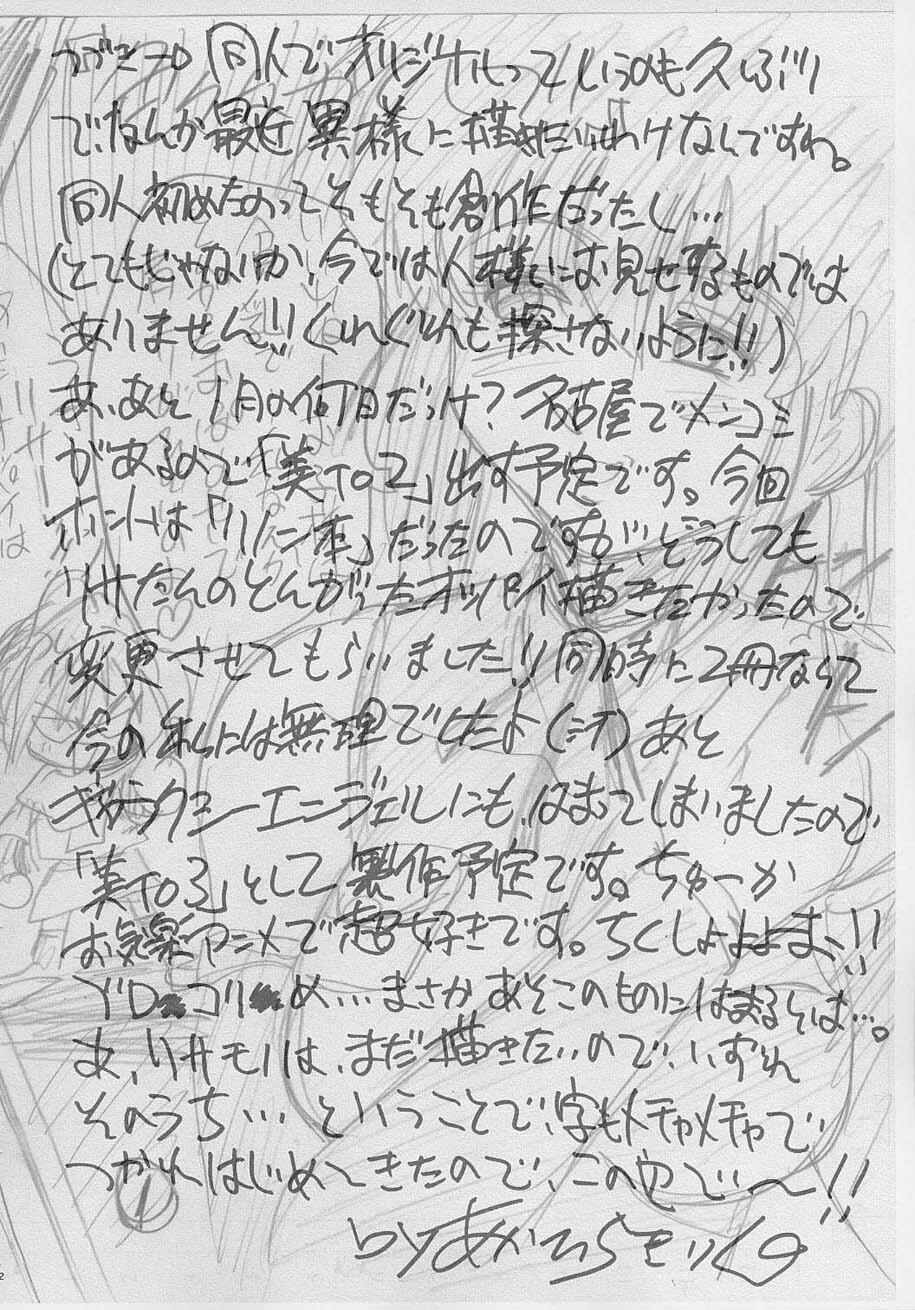 つづきー 同人でオリジナルっていうのも久しぶり
でなんか最近異様に描きたいわけなんですわ。
同人初めたのってそもそも創作だったし…
(とてもじゃないが、今では人様にお見せするものでは
ありません!!くれぐれも探さないように!!)
あ、あと1月の何日だっけ?名古屋でメンコミ
があるので「美to2」出す予定です。今回
ホントは「リノン本」だったのですが、どうしても
リサたんのとんがったオッパイ描きたかったので
変更させてもらいました!!同時に2冊なんて
今の私には無理でしたよ(汗)あと
ギャラクシーエンジェルにも、はまってしまいましたので
「美to3」として製作予定です。ちゅーか
お気楽アニメで超好きです。ちくしょよよまー!!
ブロ コリ め…まさかあそこのものにはまるとは…。
あ、リサモノは、まだ描きたいので、いずれ
そのうち…ということで、字もメチャメチャで
つかれはじめてきたので、この辺で〜!!
byあかひらきりく
2